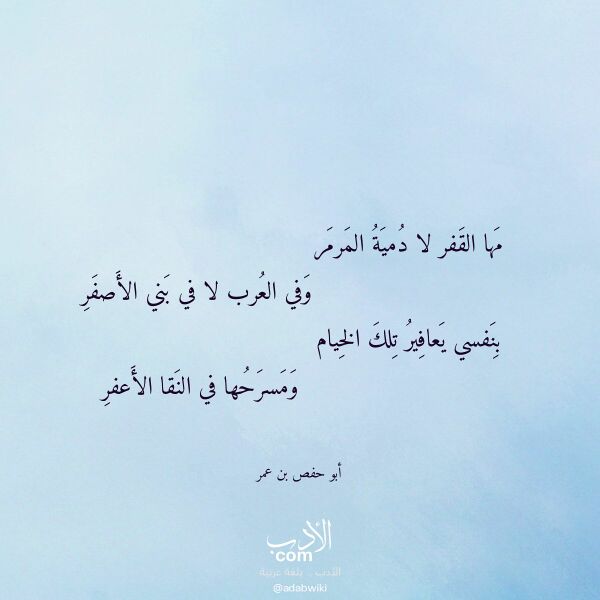 مَها القَفر لا دُميَةُ المَرمَر
وَفي العُرب لا في بَني الأَصفَرِ
بِنَفسي يَعافِيرُ تِلكَ الخِيام
وَمَسرَحُها في النَقا الأَعفرِ
أبو حفص بن عمر
الأدب
com
الأدب .. بلغة عربية
@adabwiki